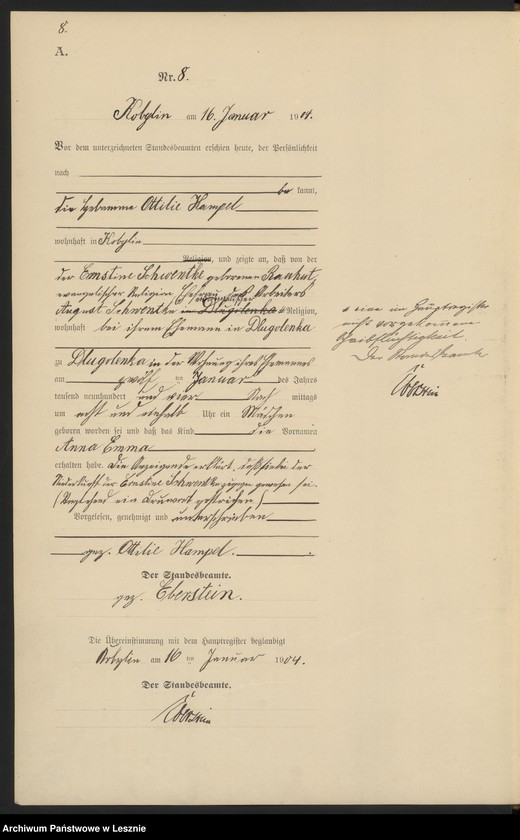 8.
A.
Nr. 8.
Kobylin am 16. Januar 1904.
Vor dem unterzeichneten Standesbeamten erschien heute, der Persönlichkeit
nach
be kannt,
die Hebamme Ottilie Hampel
wohnhaft in Kobylin
Religion, und zeigte an, daß von der
der Ernstine Schwentke geborenen Rauhut,
evangelischer Religion, Ehefrau des Arbeiters
August Schwentke in Dlugolenka Religion,
wohnhaft bei ihrem Ehemann in Dlugolenka
zu Dlugolenka in der Wohnung ihres Ehemannes
am zwölf ten Januar des Jahres
tausend neunhundert und vier Nach mittags
um acht und einhalb Uhr ein Mädchen
geboren worden sei und daß das Kind die Vornamen
Anna Emma
erhalten habe. Die Anzeigende erklärt, daß sie bei der
Niederkunft der Ernstine Schwentke zugegen gewesen sei.
(Vorstehend ein Druckwort gestrichen)
Vorgelesen, genehmigt und unterschrieben
gez. Ottilie Hampel.
Der Standesbeamte.
gez. Eberstein.
Die Übereinstimmung mit dem Hauptregister beglaubigt
Kobylin am 16 ten Januar 1904.
Der Standesbeamte.
Eberstein
eine im Hauptregister
nicht vorgekommene
Der Standesbeamte
Eberstein
Archiwum Państwowe w Lesznie